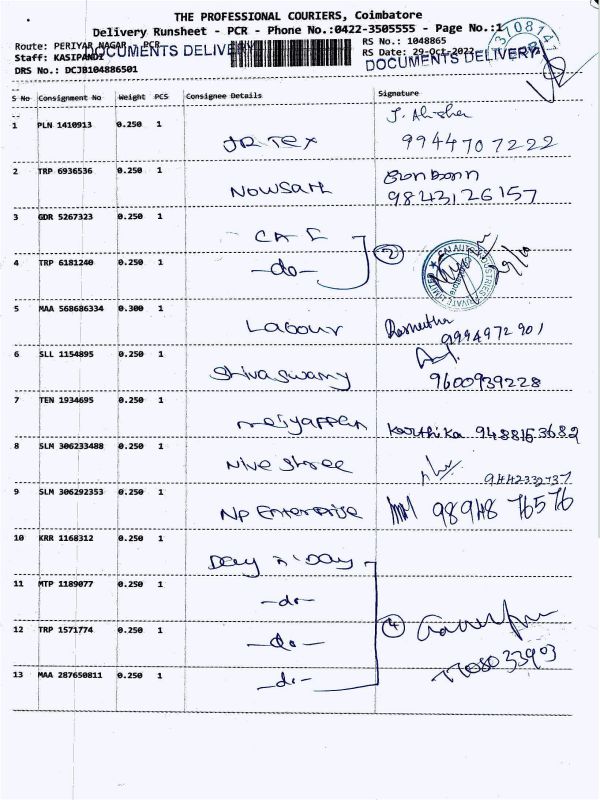 THE PROFESSIONAL COURIERS, Coimbatore
Delivery Runsheet - PCR - Phone No.:0422-3505555 - Page No.:1
Route: PERIYAR NAGAR - PCR
RS No.: 1048865
Staff: KASIPANDI
RS Date: 29-Oct-2022
DOCUMENTS DELIVERY
DOCUMENTS DELIVERY
DRS No.: DCJB104886501
3708141
S No Consignment No Weight PCS Consignee Details Signature
1 PLN 1410913 0.250 1 JR Tex 9944707222
2 TRP 6936536 0.250 1 Nowsath 9843126157
3 GDR 5267323 0.250 1 CAI
4 TRP 6181240 0.250 1 -do- 2
5 MAA 568686334 0.300 1 Labour 9994972901
6 SLL 1154895 0.250 1 Shivaswamy 9600939228
7 TEN 1934695 0.250 1 meiyappan Karthika 9488153682
8 SLM 306233488 0.250 1 Nive Shree 9442332737
9 SLM 306292353 0.250 1 NP Enterprise 98948 76576
10 KRR 1168312 0.250 1 Day n Day
11 MTP 1189077 0.250 1 -do-
12 TRP 1571774 0.250 1 -do- 4
13 MAA 287650811 0.250 1 -do- 7708033903